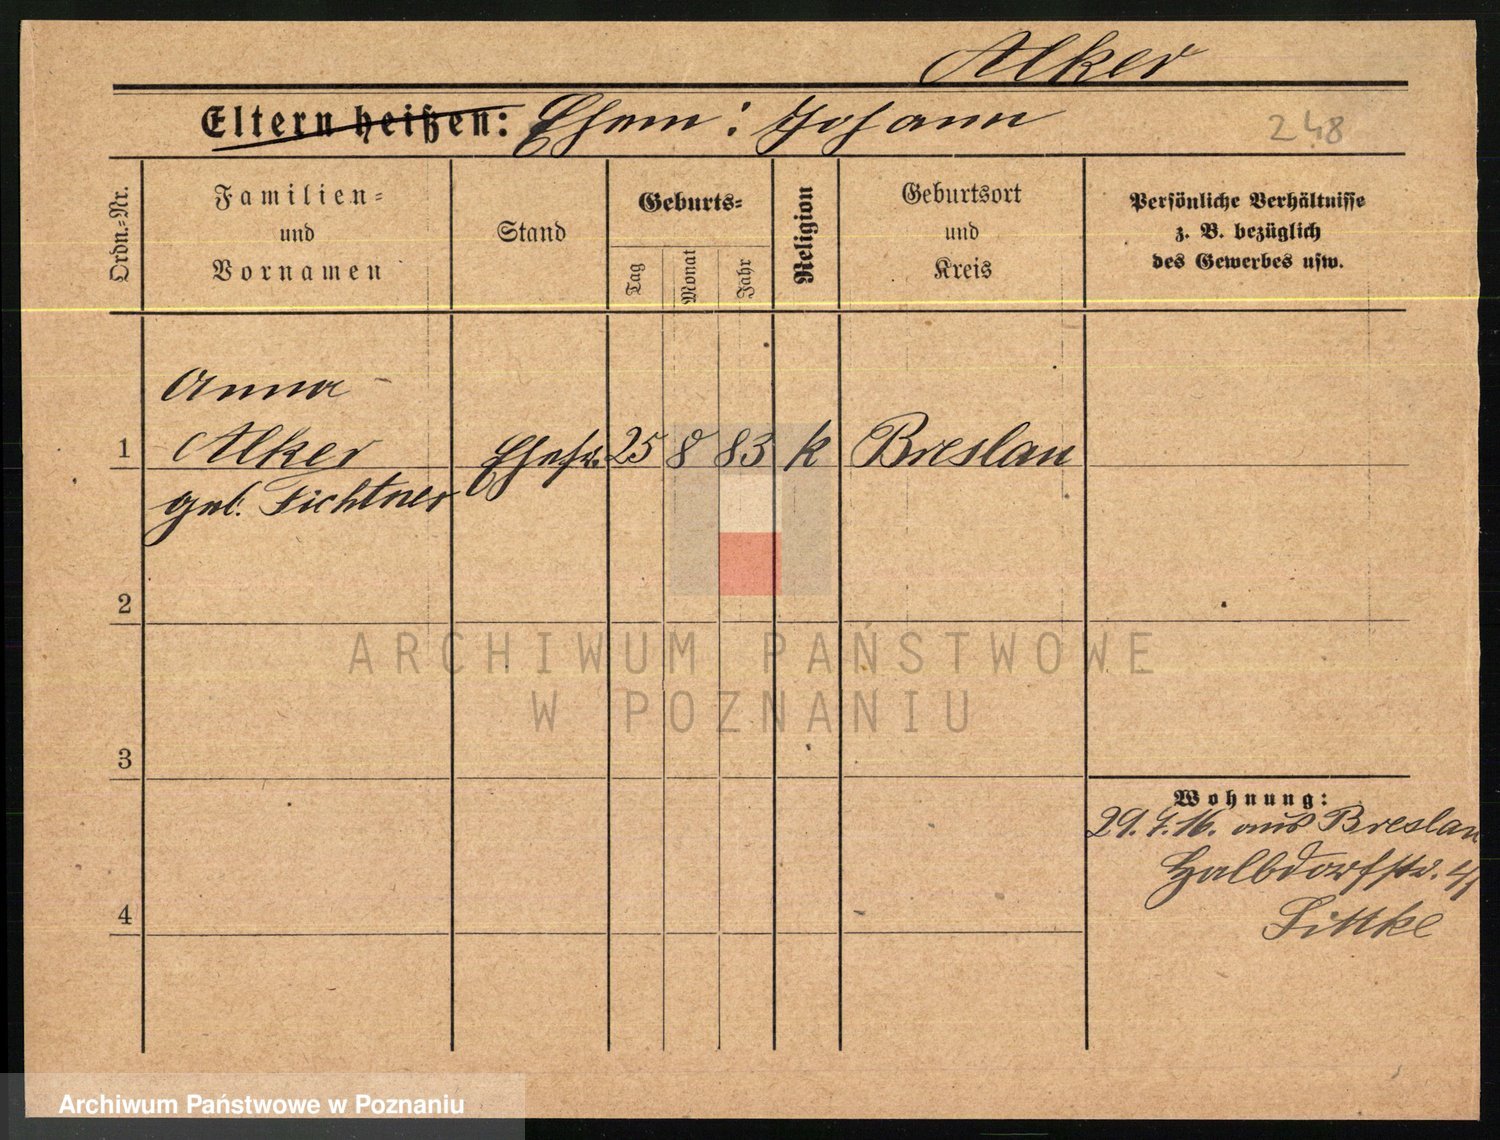 Alker
Eltern heißen: Ehem: Johann
248
Ordn.-Nr.
Familien-
und
Vornamen
Stand
Geburts-
Tag
Monat
Jahr
Religion
Geburtsort
und
Kreis
Persönliche Verhältnisse
z. B. bezüglich
des Gewerbes usw.
Anna
1 Alker Ehefr. 25 8 83 k Breslau
geb. Fichtner
2
ARCHIWUM PAŃSTWOWE
W POZNANIU
3
Wohnung:
29.7.16. aus Breslau
Halbdorfstr.
Littke
4
Archiwum Państwowe w Poznaniu